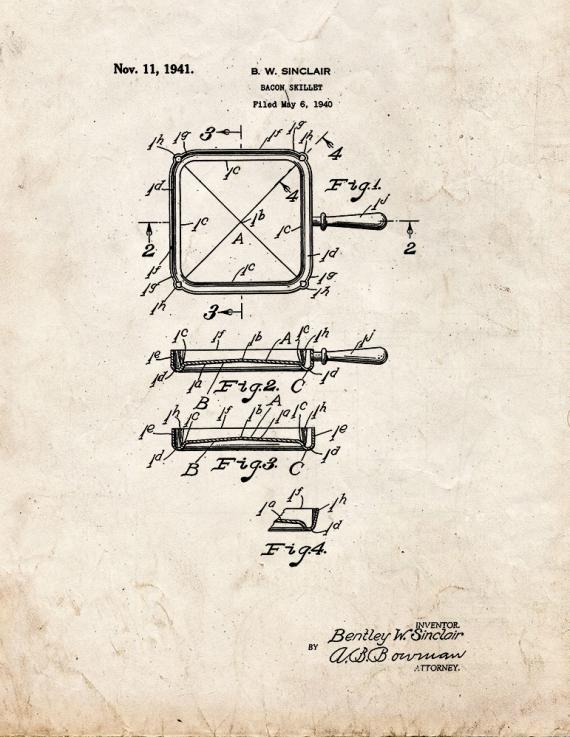 Nov. 11, 1941.
B. W. SINCLAIR
BACON SKILLET
Filed May 6, 1940
3
1h 1g 1f 1g 1h
4
1d 1c Fig.1.
4 1j
1c 1b 1c
A
2 2
1d
1f 1c 1g
1g 1h
1h
3
1c 1f 1b A 1c 1h 1j
1e
1d 1a Fig.2. C 1d
B A
1h 1c 1f 1b 1a 1c 1h
1e 1e
1d B Fig.3. C 1d
1f
1a 1h
1d
Fig.4.
INVENTOR.
Bentley W. Sinclair
BY
A.B.Bowman
ATTORNEY.